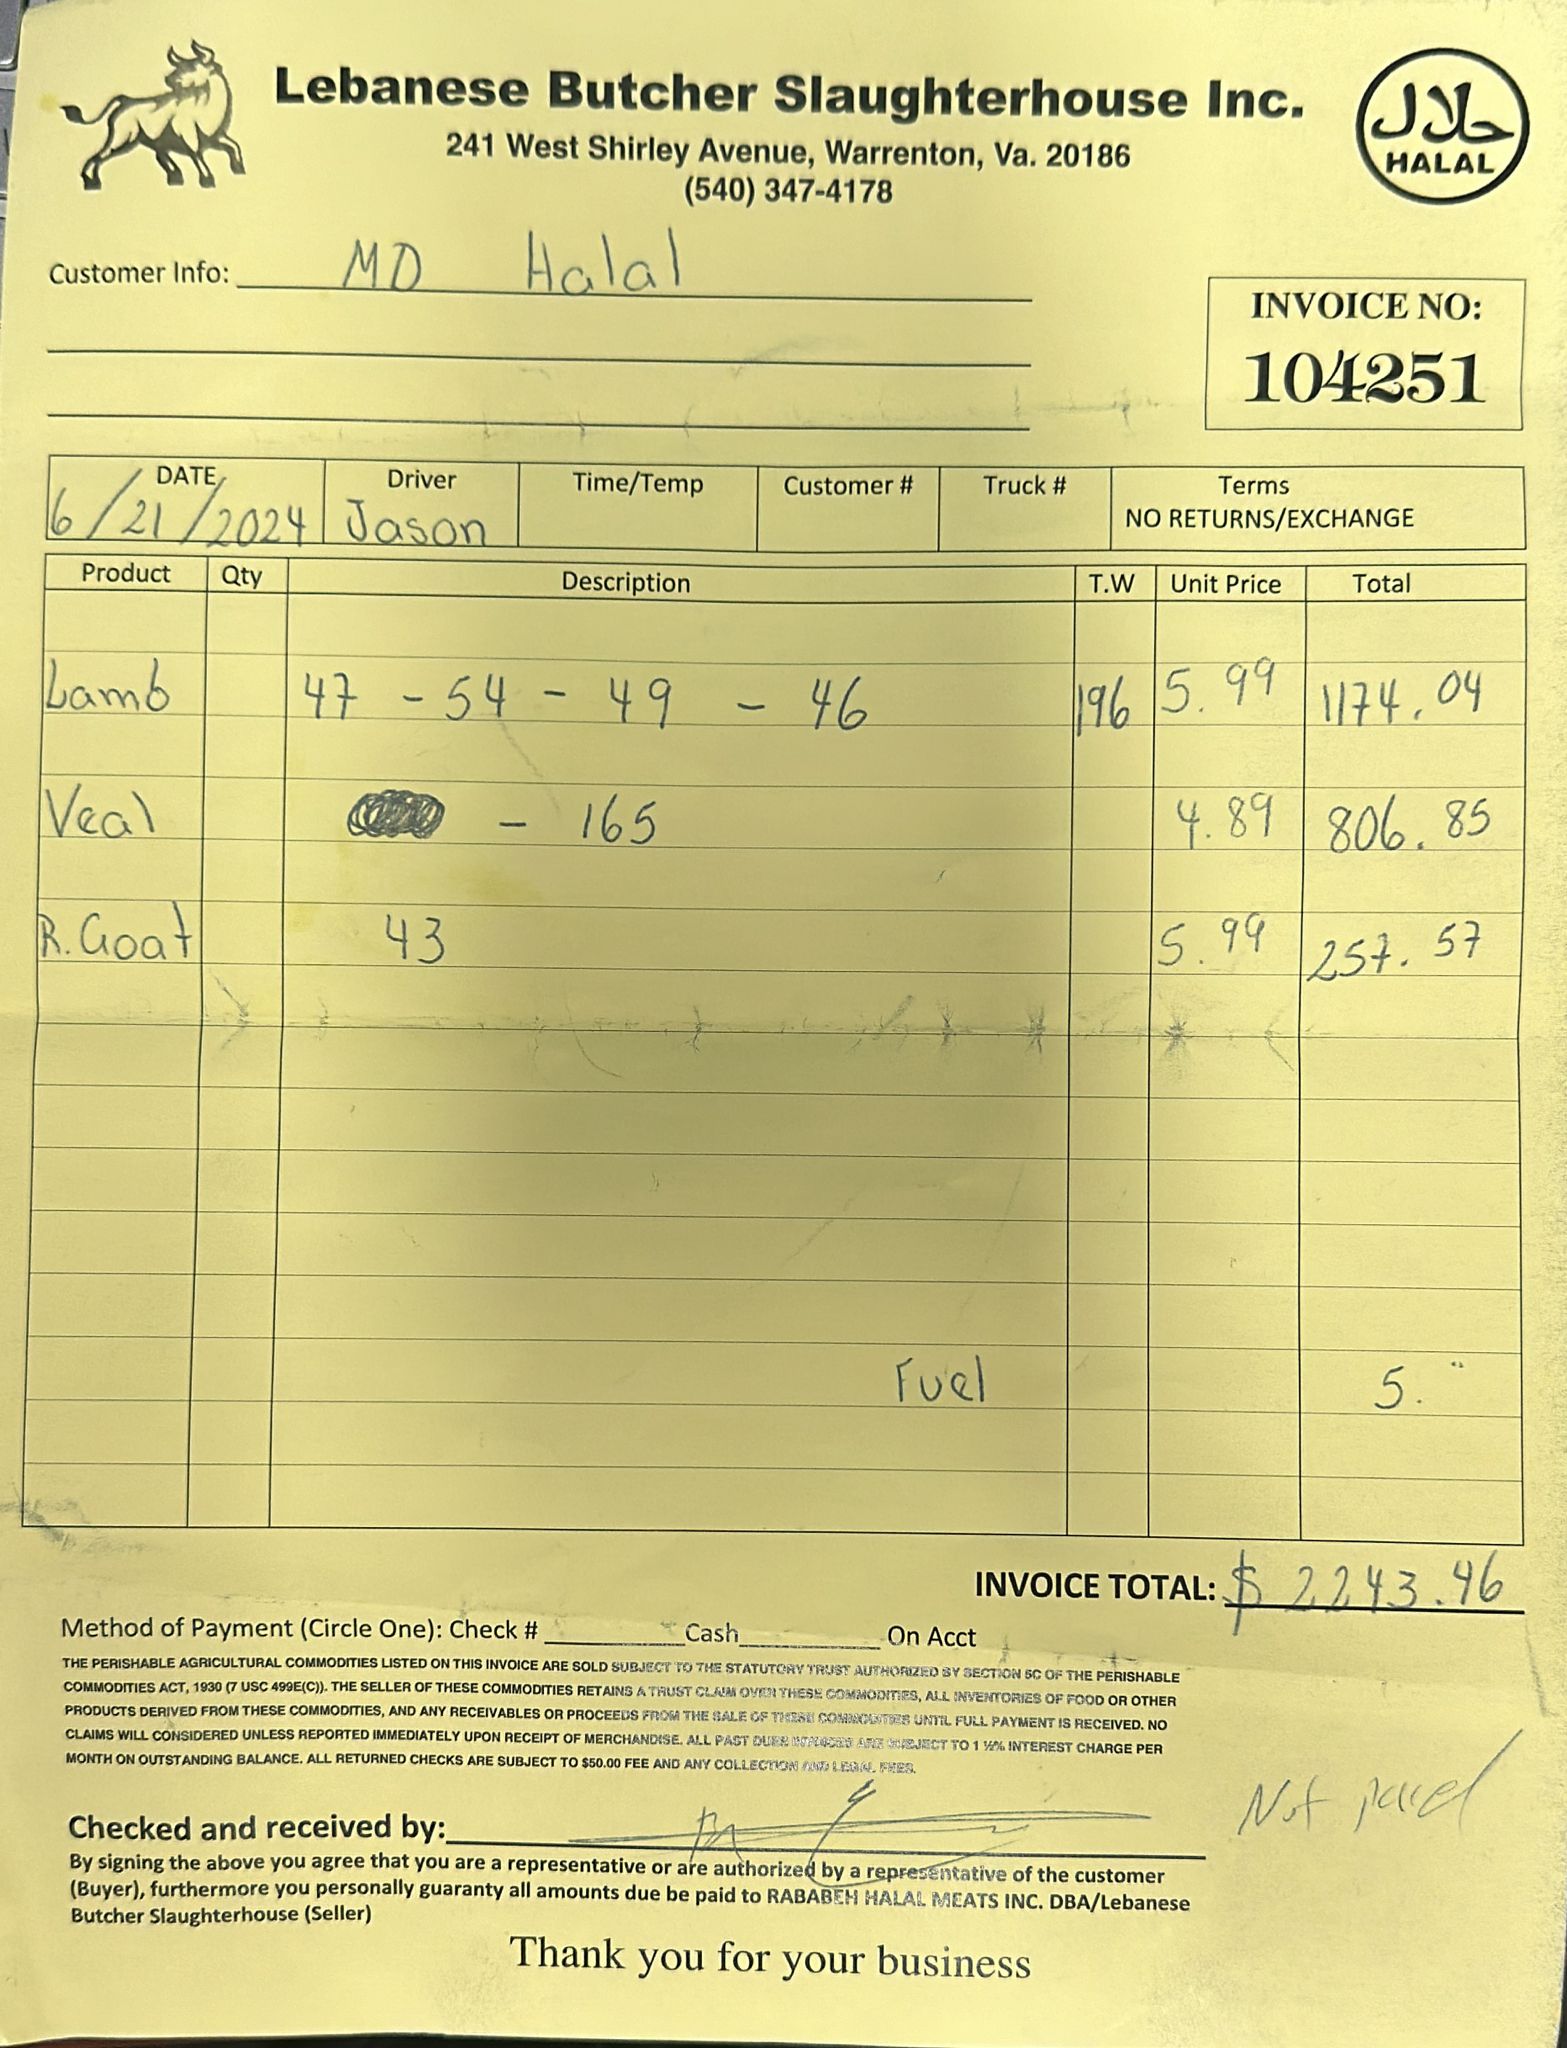 Lebanese Butcher Slaughterhouse Inc.
241 West Shirley Avenue, Warrenton, Va. 20186
(540) 347-4178
حلال
HALAL
Customer Info: MD Halal
INVOICE NO:
104251
DATE Driver Time/Temp Customer # Truck # Terms
6/21/2024 Jason NO RETURNS/EXCHANGE
Product Qty Description T.W Unit Price Total
Lamb 47 - 54 - 49 - 46 196 5.99 1174.04
Veal - 165 4.89 806.85
R. Goat 43 5.99 257.57
Fuel 5.
INVOICE TOTAL: $ 2243.46
Method of Payment (Circle One): Check # Cash On Acct
THE PERISHABLE AGRICULTURAL COMMODITIES LISTED ON THIS INVOICE ARE SOLD SUBJECT TO THE STATUTORY TRUST AUTHORIZED BY SECTION 5C OF THE PERISHABLE
COMMODITIES ACT, 1930 (7 USC 499E(C)). THE SELLER OF THESE COMMODITIES RETAINS A TRUST CLAIM OVER THESE COMMODITIES, ALL INVENTORIES OF FOOD OR OTHER
PRODUCTS DERIVED FROM THESE COMMODITIES, AND ANY RECEIVABLES OR PROCEEDS FROM THE SALE OF THESE COMMODITIES UNTIL FULL PAYMENT IS RECEIVED. NO
CLAIMS WILL CONSIDERED UNLESS REPORTED IMMEDIATELY UPON RECEIPT OF MERCHANDISE. ALL PAST DUE INVOICES ARE SUBJECT TO 1 ½% INTEREST CHARGE PER
MONTH ON OUTSTANDING BALANCE. ALL RETURNED CHECKS ARE SUBJECT TO $50.00 FEE AND ANY COLLECTION AND LEGAL FEES.
Not paid
Checked and received by:
By signing the above you agree that you are a representative or are authorized by a representative of the customer
(Buyer), furthermore you personally guaranty all amounts due be paid to RABABEH HALAL MEATS INC. DBA/Lebanese
Butcher Slaughterhouse (Seller)
Thank you for your business